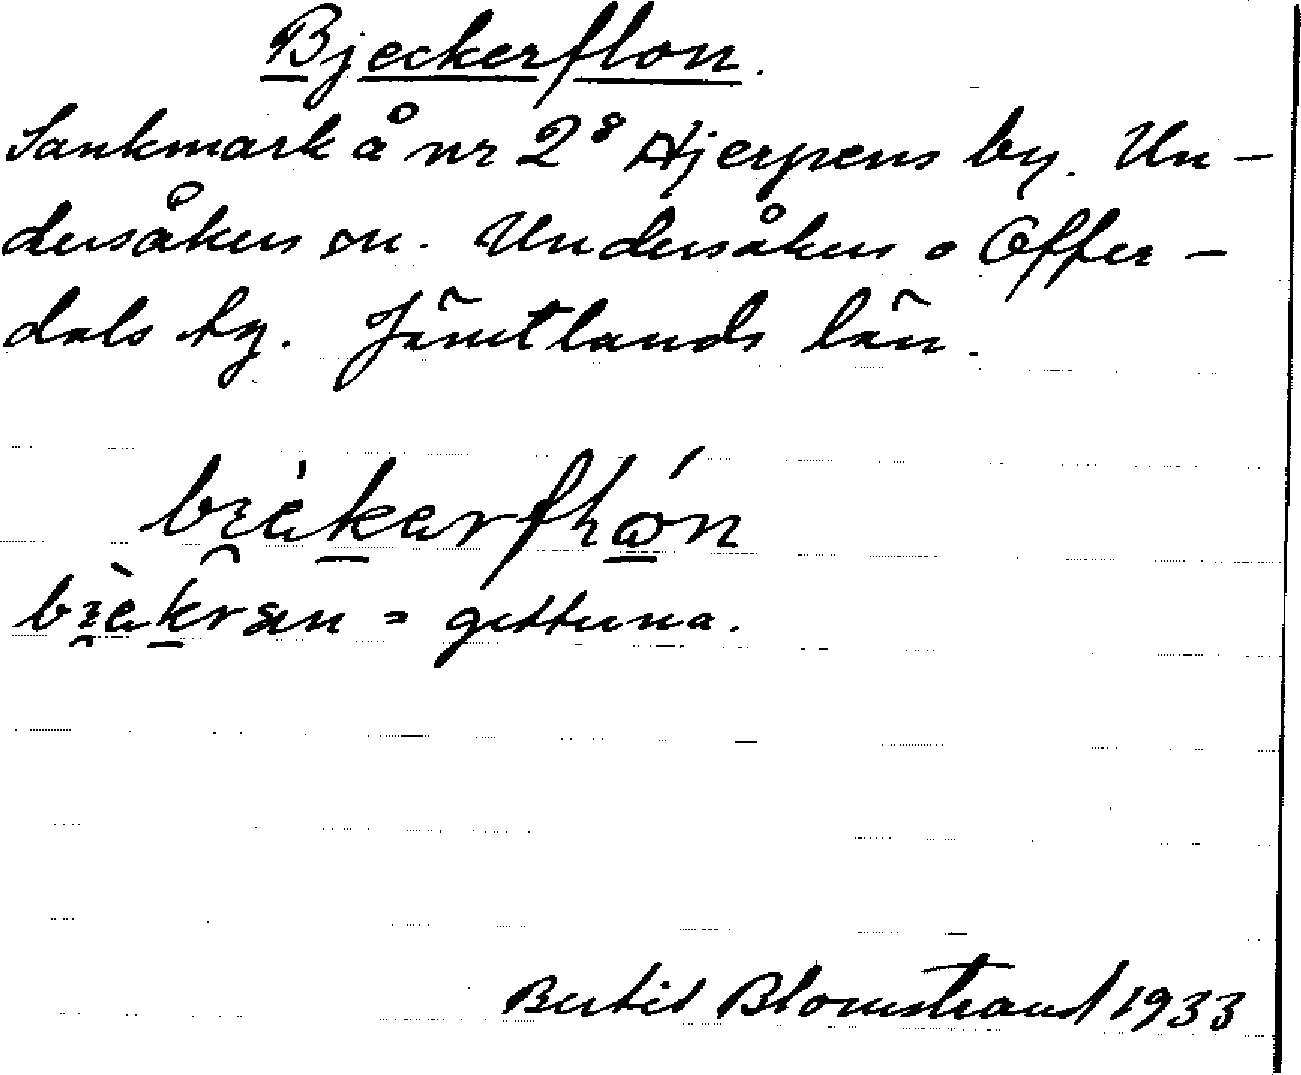 Bjeckerflon.
Sankmark å nr 2⁸ Hjerpens by. Un-
dersåkers sn. Undersåkers o Offer-
dals tg. Jämtlands län.
getterna.
Bertil Blomstrand 1933